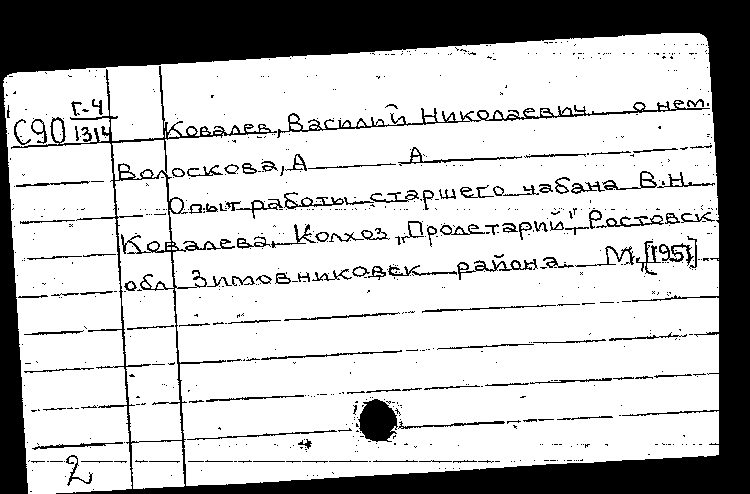 Г-4
С90 1314 Ковалев, Василий Николаевич о нем.
Волоскова, А А
Опыт работы старшего чабана В.Н.
Ковалева. Колхоз "Пролетарий", Ростовск.
обл. Зимовниковск района. М., [1951]
2